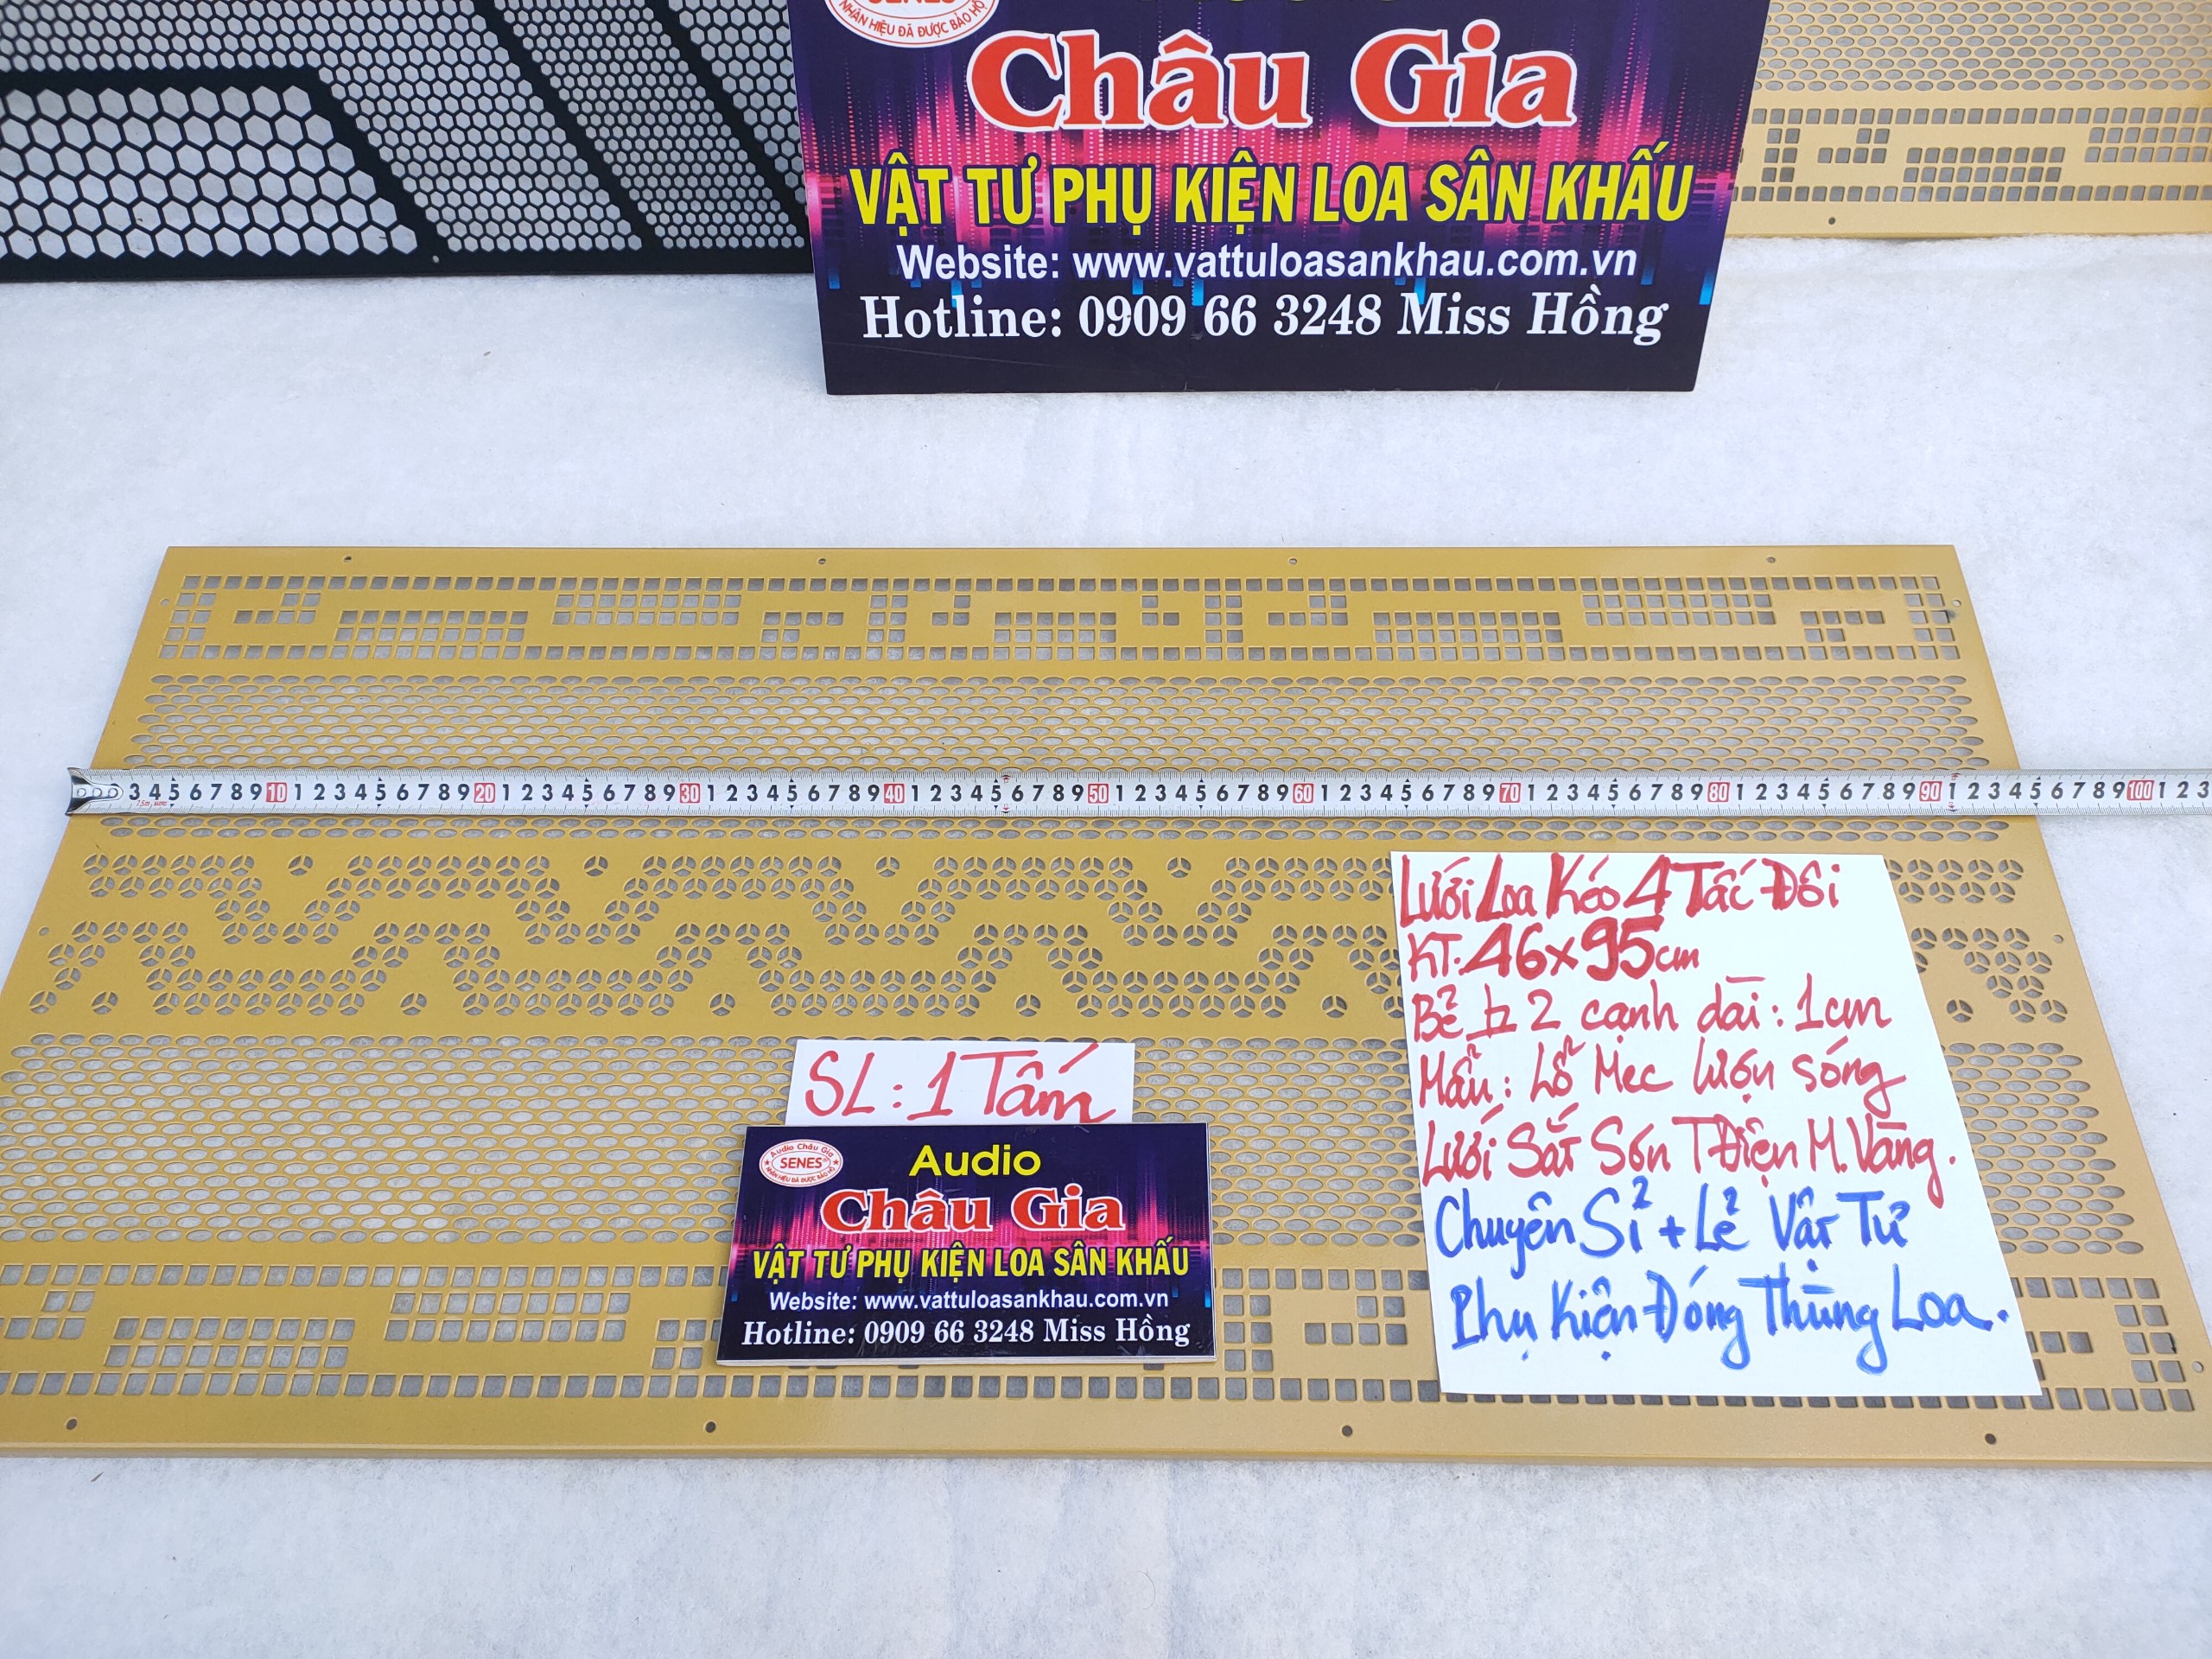 SENES
NHÃN HIỆU ĐÃ ĐƯỢC BẢO HỘ
Châu Gia
VẬT TƯ PHỤ KIỆN LOA SÂN KHẤU
Website: www.vattuloasankhau.com.vn
Hotline: 0909 66 3248 Miss Hồng
3 4 5 6 7 8 9 10 1 2 3 4 5 6 7 8 9 20 1 2 3 4 5 6 7 8 9 30 1 2 3 4 5 6 7 8 9 40 1 2 3 4 5 6 7 8 9 50 1 2 3 4 5 6 7 8 9 60 1 2 3 4 5 6 7 8 9 70 1 2 3 4 5 6 7 8 9 80 1 2 3 4 5 6 7 8 9 90 1 2 3 4 5 6 7 8 9 100 1 2 3
Lưới Loa Kéo 4 Tấc Đôi
KT: 46x95cm
Bẻ 2 cạnh dài: 1cm
Mẫu: Lỗ Mec lượn sóng
Lưới Sắt Sơn TĐiện M.Vàng.
Chuyên Sỉ + Lẻ Vật Tư
Phụ Kiện Đóng Thùng Loa.
SL: 1 Tấm
Audio Châu Gia
SENES
NHÃN HIỆU ĐÃ ĐƯỢC BẢO HỘ
Audio
Châu Gia
VẬT TƯ PHỤ KIỆN LOA SÂN KHẤU
Website: www.vattuloasankhau.com.vn
Hotline: 0909 66 3248 Miss Hồng